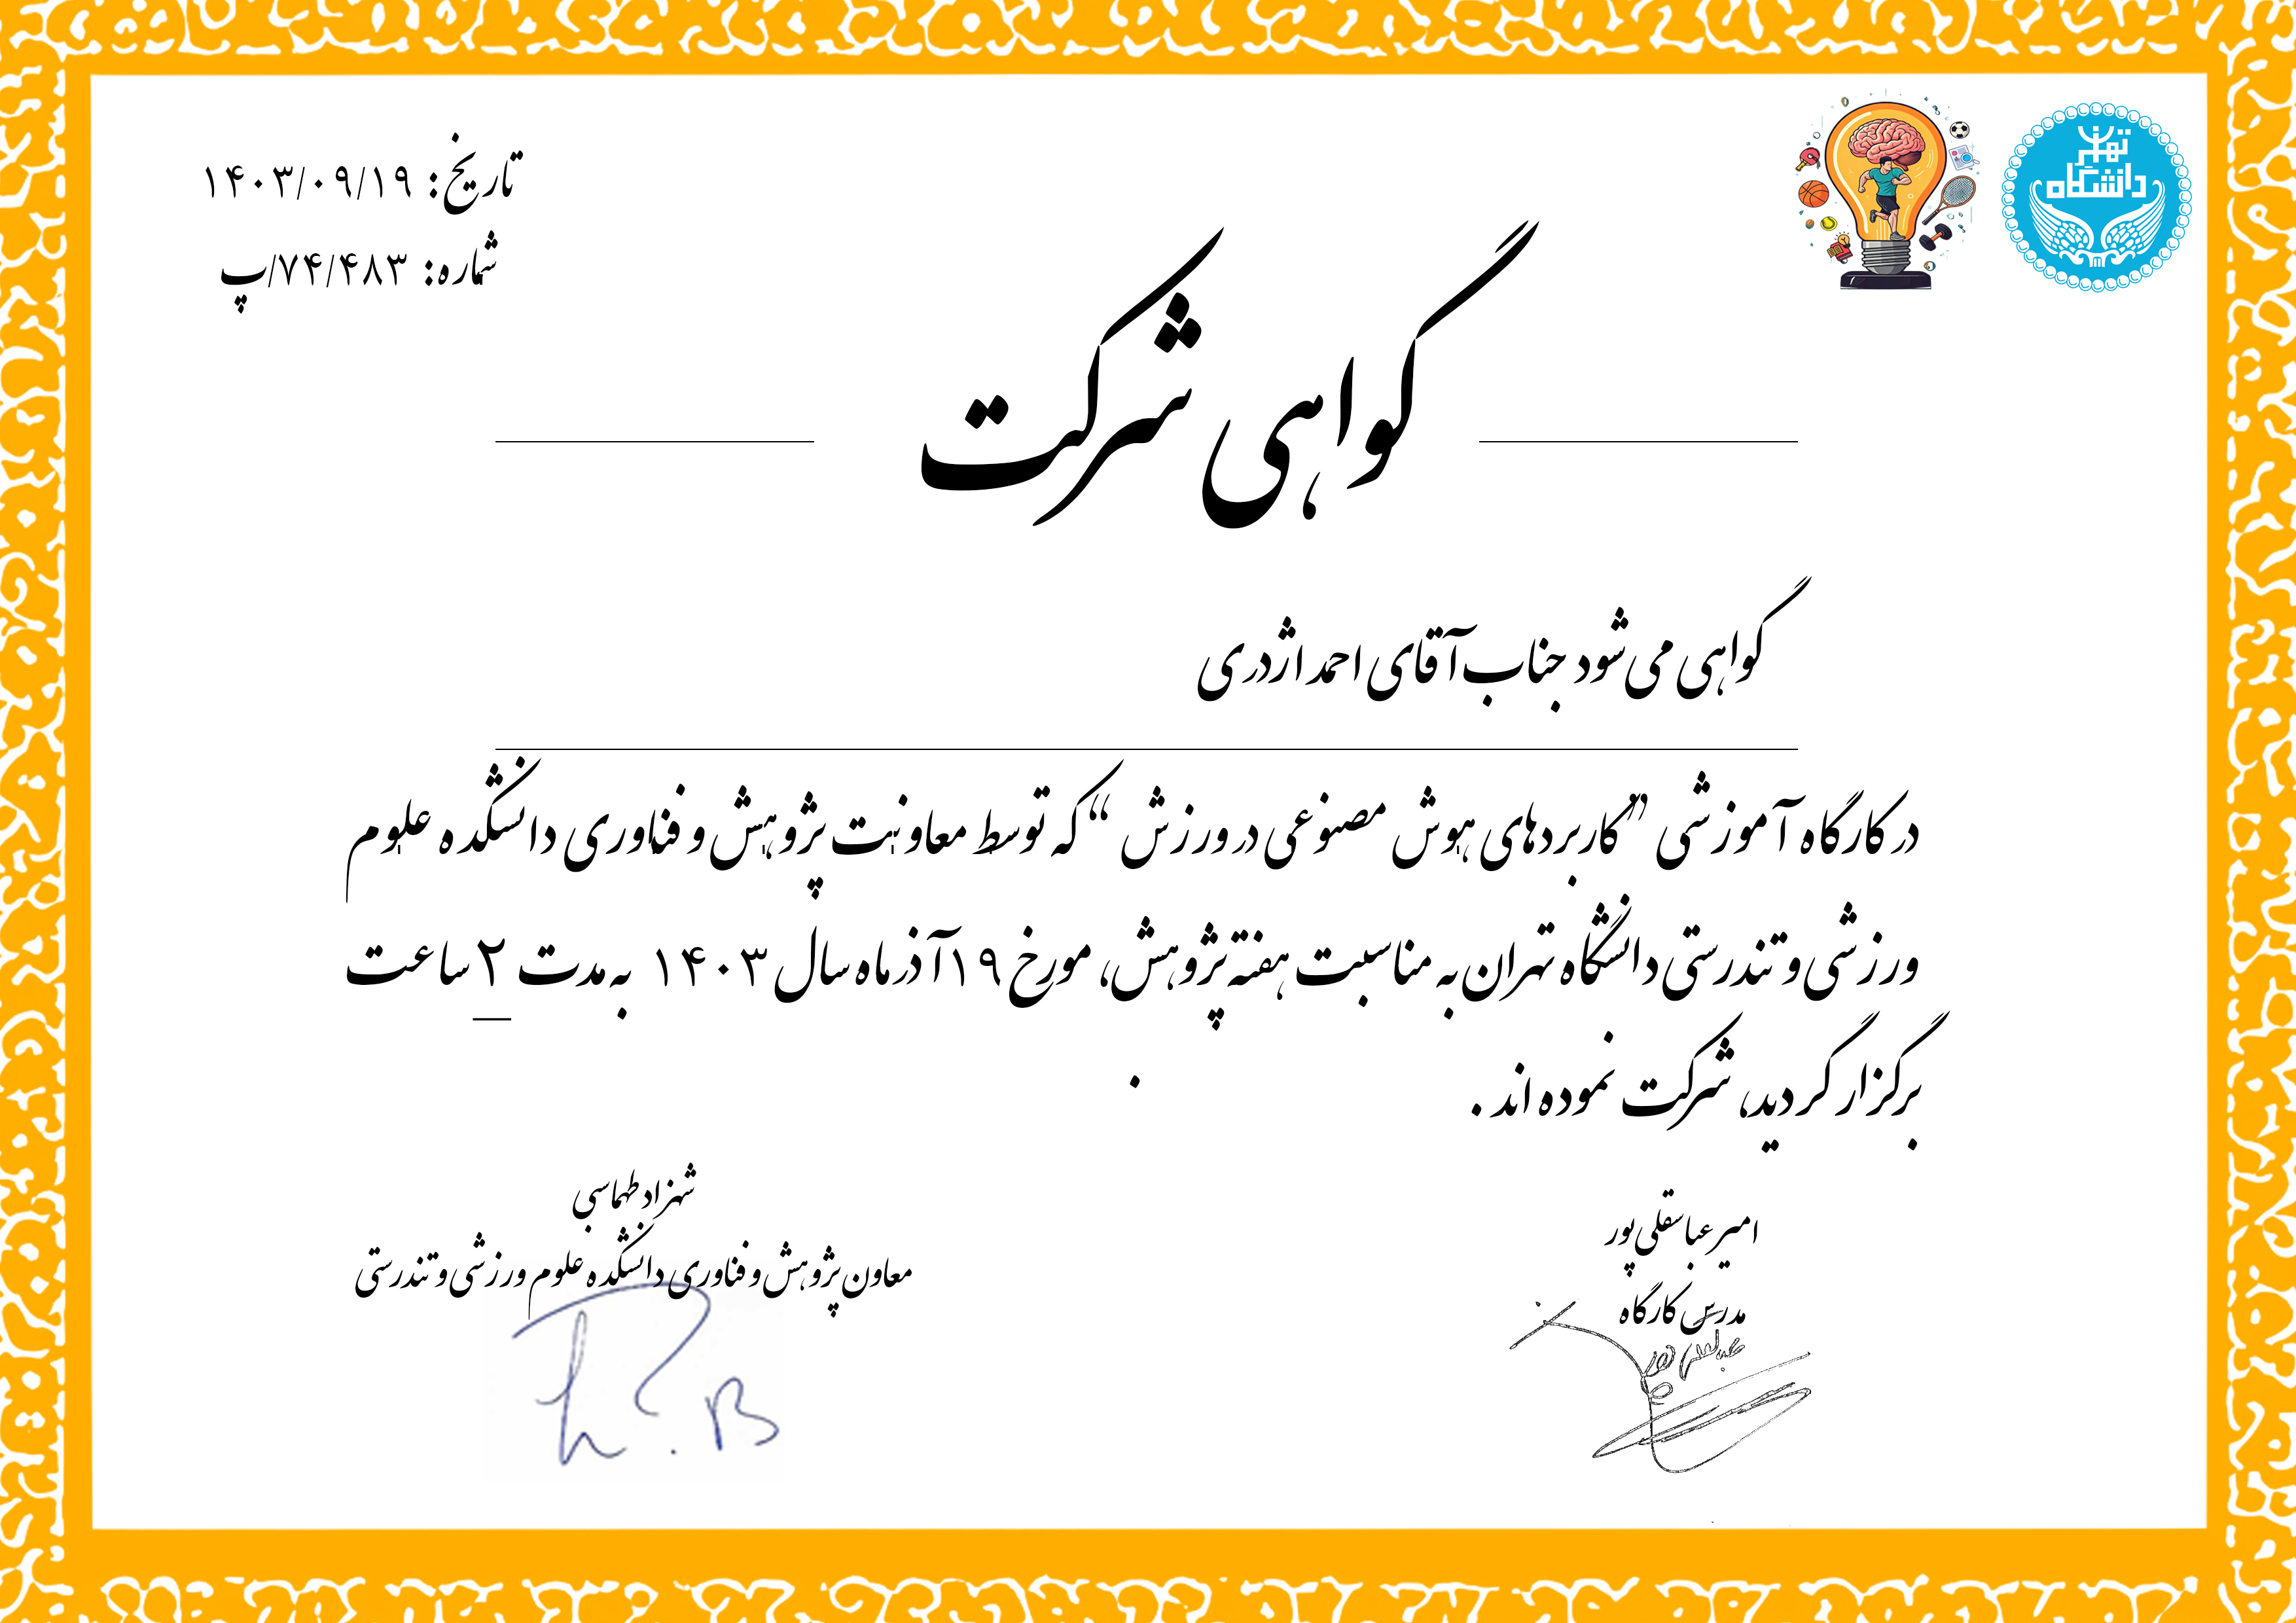 دانشگاه تهران
تاریخ: ۱۴۰۳/۰۹/۱۹
شماره: ۷۴/۴۸۳/پ
گواهی شرکت
گواهی می‌شود جناب آقای احمد اژدری
در کارگاه آموزشی "کاربردهای هوش مصنوعی در ورزش" که توسط معاونت پژوهش و فناوری دانشکده علوم
ورزشی و تندرستی دانشگاه تهران به مناسبت هفته پژوهش، مورخ ۱۹ آذر ماه سال ۱۴۰۳ به مدت ۲ ساعت
برگزار گردید، شرکت نموده اند.
امیر عباسقلی‌پور
مدرس کارگاه
عباسقلی پور
شهزاد طهماسبی
معاون پژوهش و فناوری دانشکده علوم ورزشی و تندرستی